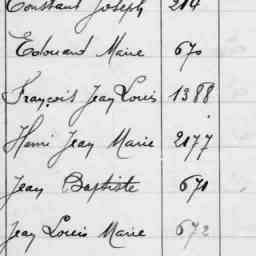 Constant Joseph 214
Edouard Marie 670
François Jean Louis 1388
Henri Jean Marie 2177
Jean Baptiste 671
Jean Louis Marie 672